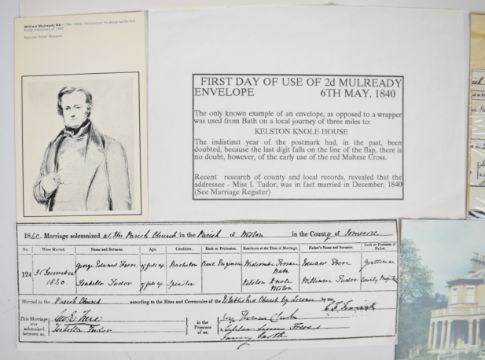 William Mulready RA
National Postal Museum
FIRST DAY OF USE OF 2d MULREADY
ENVELOPE 6TH MAY, 1840
The only known example of an envelope, as opposed to a wrapper
was used from Bath on a local journey of three miles to:
KELSTON KNOLE HOUSE
The indistinct year of the postmark had, in the past, been
doubted, because the last digit falls on the line of the flap, there is
no doubt, however, of the early use of the red Maltese Cross.
Recent research of county and local records, revealed that the
addressee - Miss I. Tudor, was in fact married in December, 1840
(See Marriage Register)
1840. Marriage solemnized at the Parish Church in the Parish of Weston in the County of Somerset
No. When Married. Name and Surname. Age. Condition. Rank or Profession. Residence at the Time of Marriage. Father's Name and Surname. Rank or Profession of Father.
124 31 December George Edward Frere of full age Bachelor Civil Engineer Widcombe Terrace Bath Edward Frere Gentleman
1840. Isabella Tudor of full age Spinster Kelston Knole Weston William Tudor
Married in the Parish Church according to the Rites and Ceremonies of the Established Church by Licence by me,
This Marriage was solemnized between us, Geo E Frere Isabella Tudor in the Presence of us,